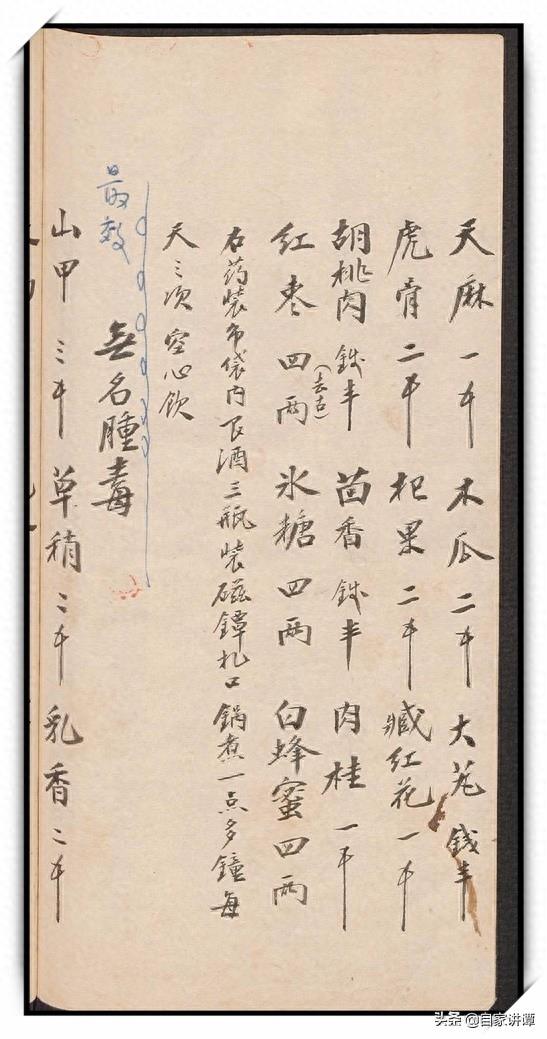 天麻一钱 木瓜二钱 大艽钱半
虎骨二钱 杞果二钱 藏红花一钱
胡桃肉钱半(去古) 茴香钱半 肉桂一钱
红枣四两 氷糖四两 白蜂蜜四两
右药装布袋内 良酒三瓶 装磁罈扎口 鍋煮一点多鐘每
天三次空心飲
最效
無名腫毒
山甲三钱 草稍二钱 乳香二钱
头条 @自家讲谭